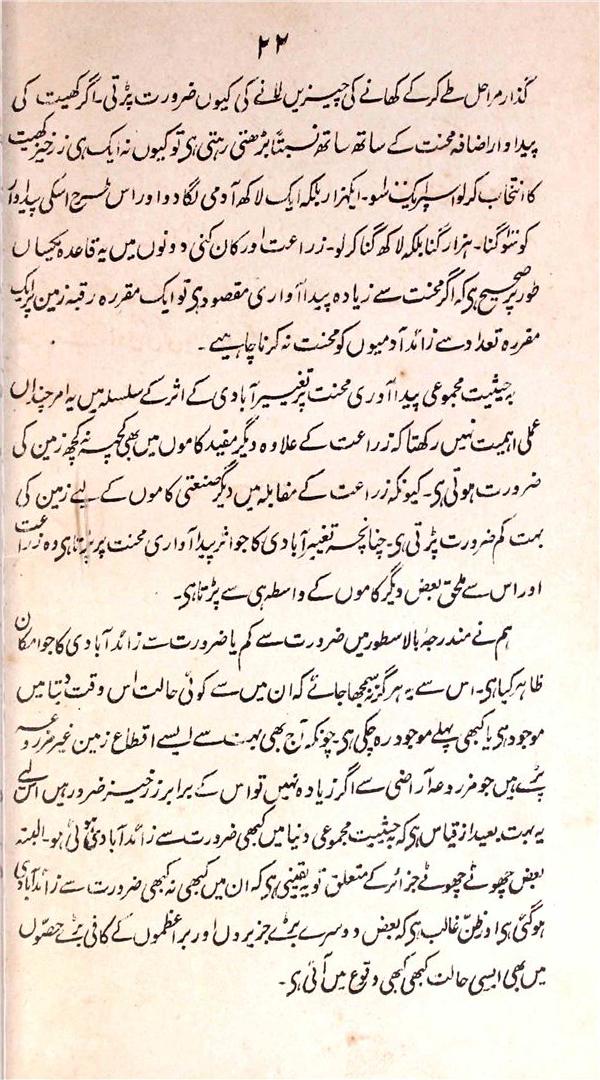 ۲۲
گذار مراحل طے کرکے کھانے کی چیزیں لانے کی کیوں ضرورت پڑتی۔ اگر کھیت کی
پیداوار اضافہ محنت کے ساتھ ساتھ نسبتًا بڑھتی رہتی ہی تو کیوں نہ ایک ہی زرخیز کھیت
کا انتخاب کرلو اسپر ایک سو۔ ایکہزار بلکہ ایک لاکھ آدمی لگا دو اور اس طرح اسکی پیداوار
کو سَو گنا۔ ہزار گنا بلکہ لاکھ گنا کرلو۔ زراعت اور کان کنی دونوں میں یہ قاعدہ یکساں
طور پر صحیح ہی کہ اگر محنت سے زیادہ پیداآواری مقصود ہی تو ایک مقررہ رقبہ زمین پر ایک
مقررہ تعداد سے زائد آدمیوں کو محنت نہ کرنا چاہیے۔
بہ حیثیت مجموعی پیداآوری محنت پر تغییر آبادی کے اثر کے سلسلہ میں یہ امر چنداں
عملی اہمیت نہیں رکھتا کہ زراعت کے علاوہ دیگر مفید کاموں میں بھی کچھ نہ کچھ زمین کی
ضرورت ہوتی ہی۔ کیونکہ زراعت کے مقابلہ میں دیگر صنعتی کاموں کے لیے زمین کی
بہت کم ضرورت پڑتی ہی۔ چنانچہ تغییر آبادی کا جو اثر پیداآواری محنت پر پڑتا ہی وہ زراعت
اور اس سے ملحق بعض دیگر کاموں کے واسطہ ہی سے پڑتا ہی۔
ہم نے مندرجۂ بالا سطور میں ضرورت سے کم یا ضرورت سے زائد آبادی کا جو امکان
ظاہر کیا ہی۔ اس سے یہ ہرگز نہ سمجھا جائے کہ ان میں سے کوئی حالت اس وقت دنیا میں
موجود ہی یا کبھی پہلے موجود رہ چکی ہی۔ چونکہ آج بھی بہت سے ایسے اقطاع زمین غیر مزروعہ
پڑے ہیں جو مزروعہ آراضی سے اگر زیادہ نہیں تو اس کے برابر زرخیز ضرور ہیں اس لیے
یہ بہت بعید از قیاس ہی کہ بحیثیت مجموعی دنیا میں کبھی ضرورت سے زائد آبادی ہوئی ہو۔ البتہ
بعض چھوٹے چھوٹے جزائر کے متعلق تو یہ یقینی ہی کہ ان میں کبھی نہ کبھی ضرورت سے زائد آبادی
ہوگئی ہی اور ظنِّ غالب ہی کہ بعض دوسرے بڑے جزیروں اور براعظموں کے کافی بڑے حصّوں
میں بھی ایسی حالت کبھی کبھی وقوع میں آئی ہی۔